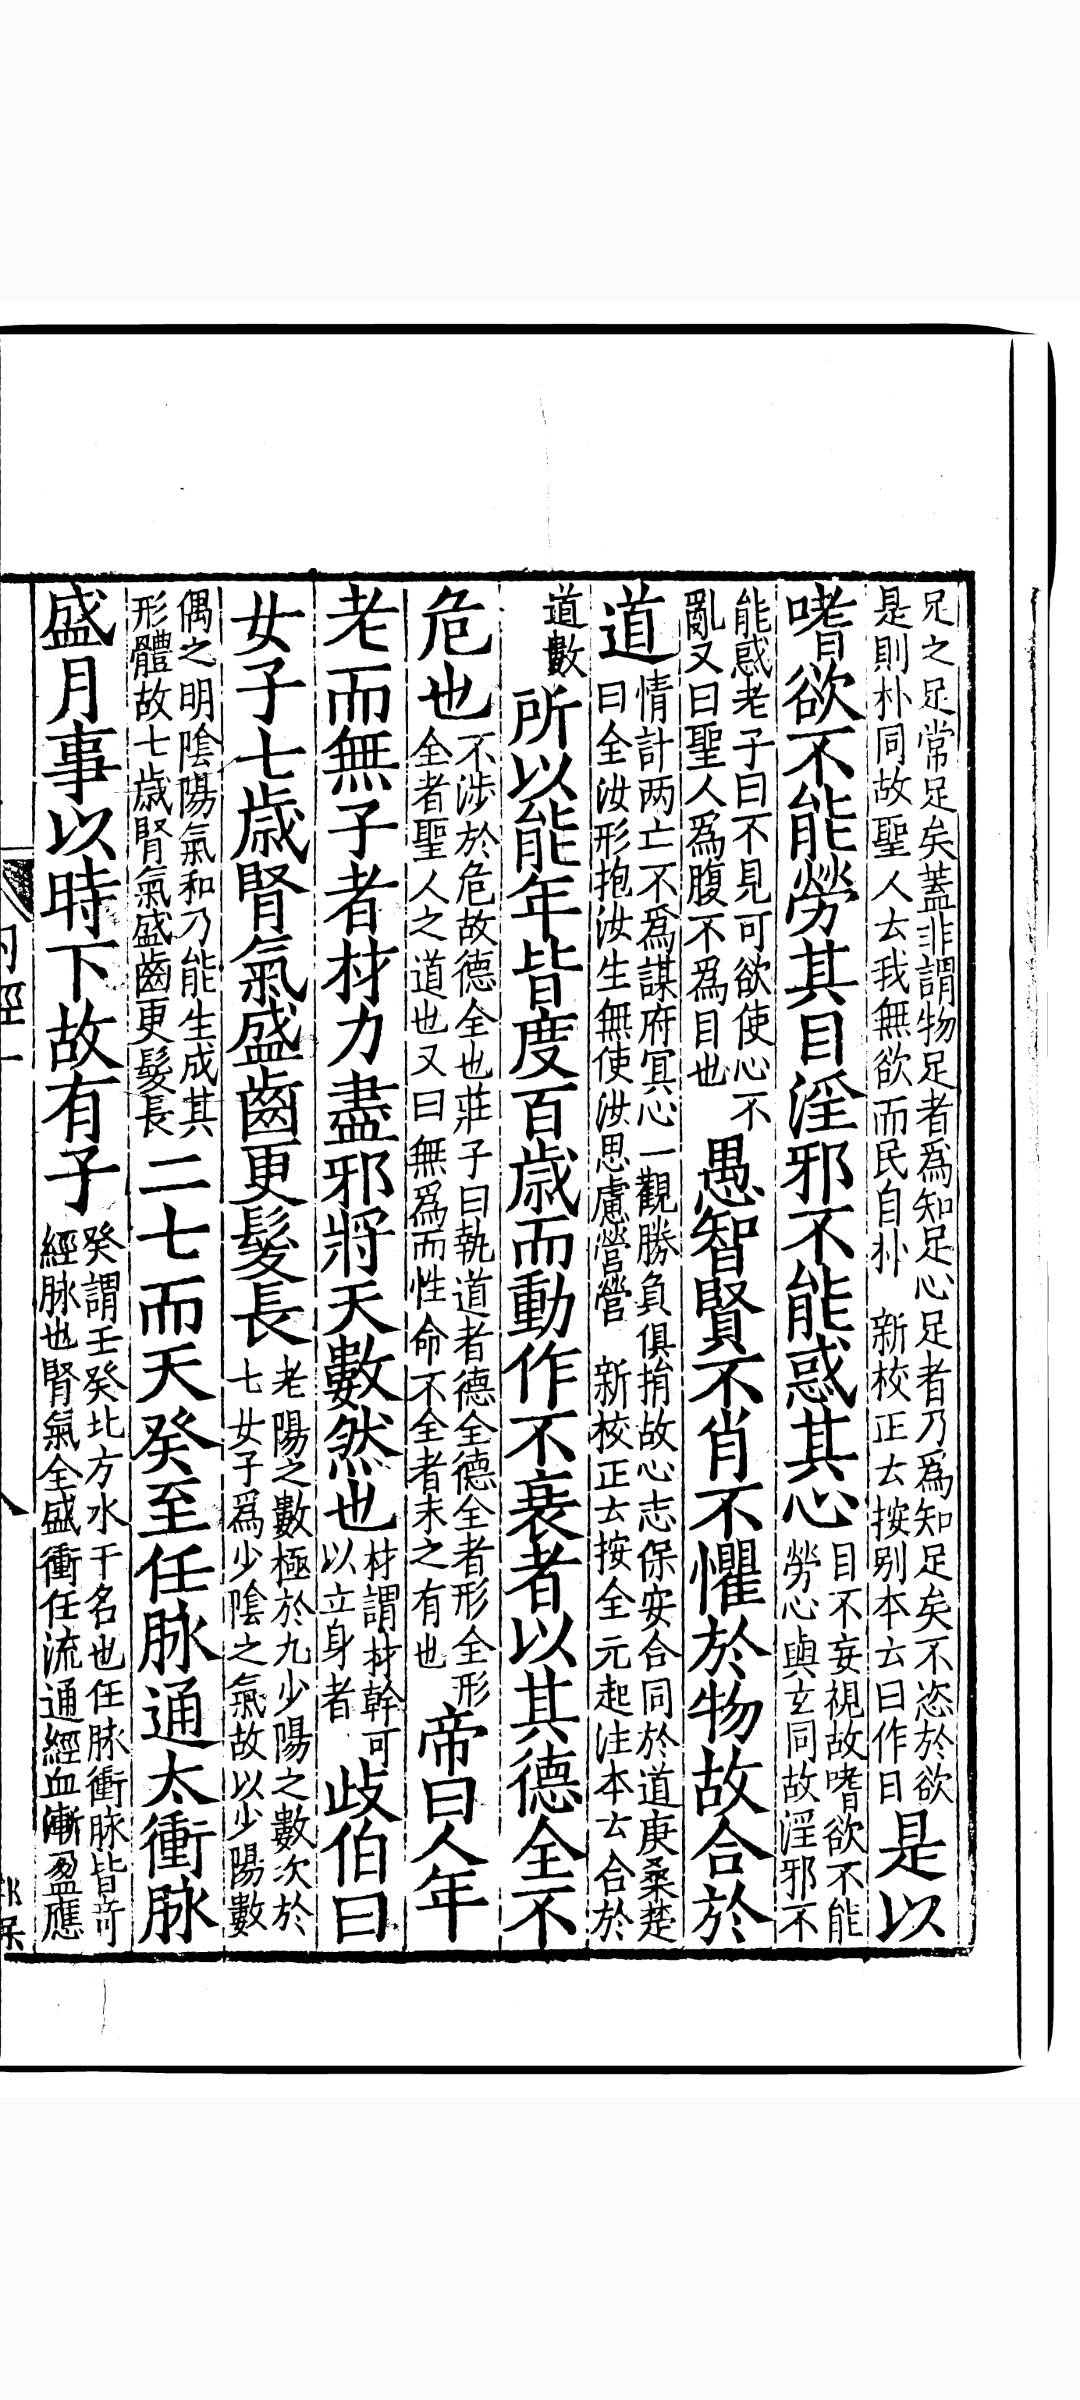 足之足常足矣蓋非謂物足者爲知足心足者乃爲知足矣不恣於欲
是則朴同故聖人云我無欲而民自朴 新校正云按别本云曰作日
是以
嗜欲不能勞其目淫邪不能惑其心
目不妄視故嗜欲不能
勞心與玄同故淫邪不
能惑老子曰不見可欲使心不
亂又曰聖人爲腹不爲目也
愚智賢不肖不懼於物故合於
道
情計两亡不爲謀府冥心一觀勝負俱捐故心志保安合同於道庚桑楚
曰全汝形抱汝生無使汝思慮營營 新校正云按全元起注本云合於
道數
所以能年皆度百歲而動作不衰者以其德全不
危也
不涉於危故德全也莊子曰執道者德全德全者形全形
全者聖人之道也又曰無爲而性命不全者未之有也
帝曰人年
老而無子者材力盡邪將天數然也
材謂材幹可
以立身者
歧伯曰
女子七歲腎氣盛齒更髮長
老陽之數極於九少陽之數次於
七女子爲少陰之氣故以少陽數
偶之明陰陽氣和乃能生成其
形體故七歲腎氣盛齒更髮長
二七而天癸至任脉通太衝脉
盛月事以時下故有子
癸謂壬癸北方水干名也任脉衝脉皆奇
經脉也腎氣全盛衝任流通經血漸盈應